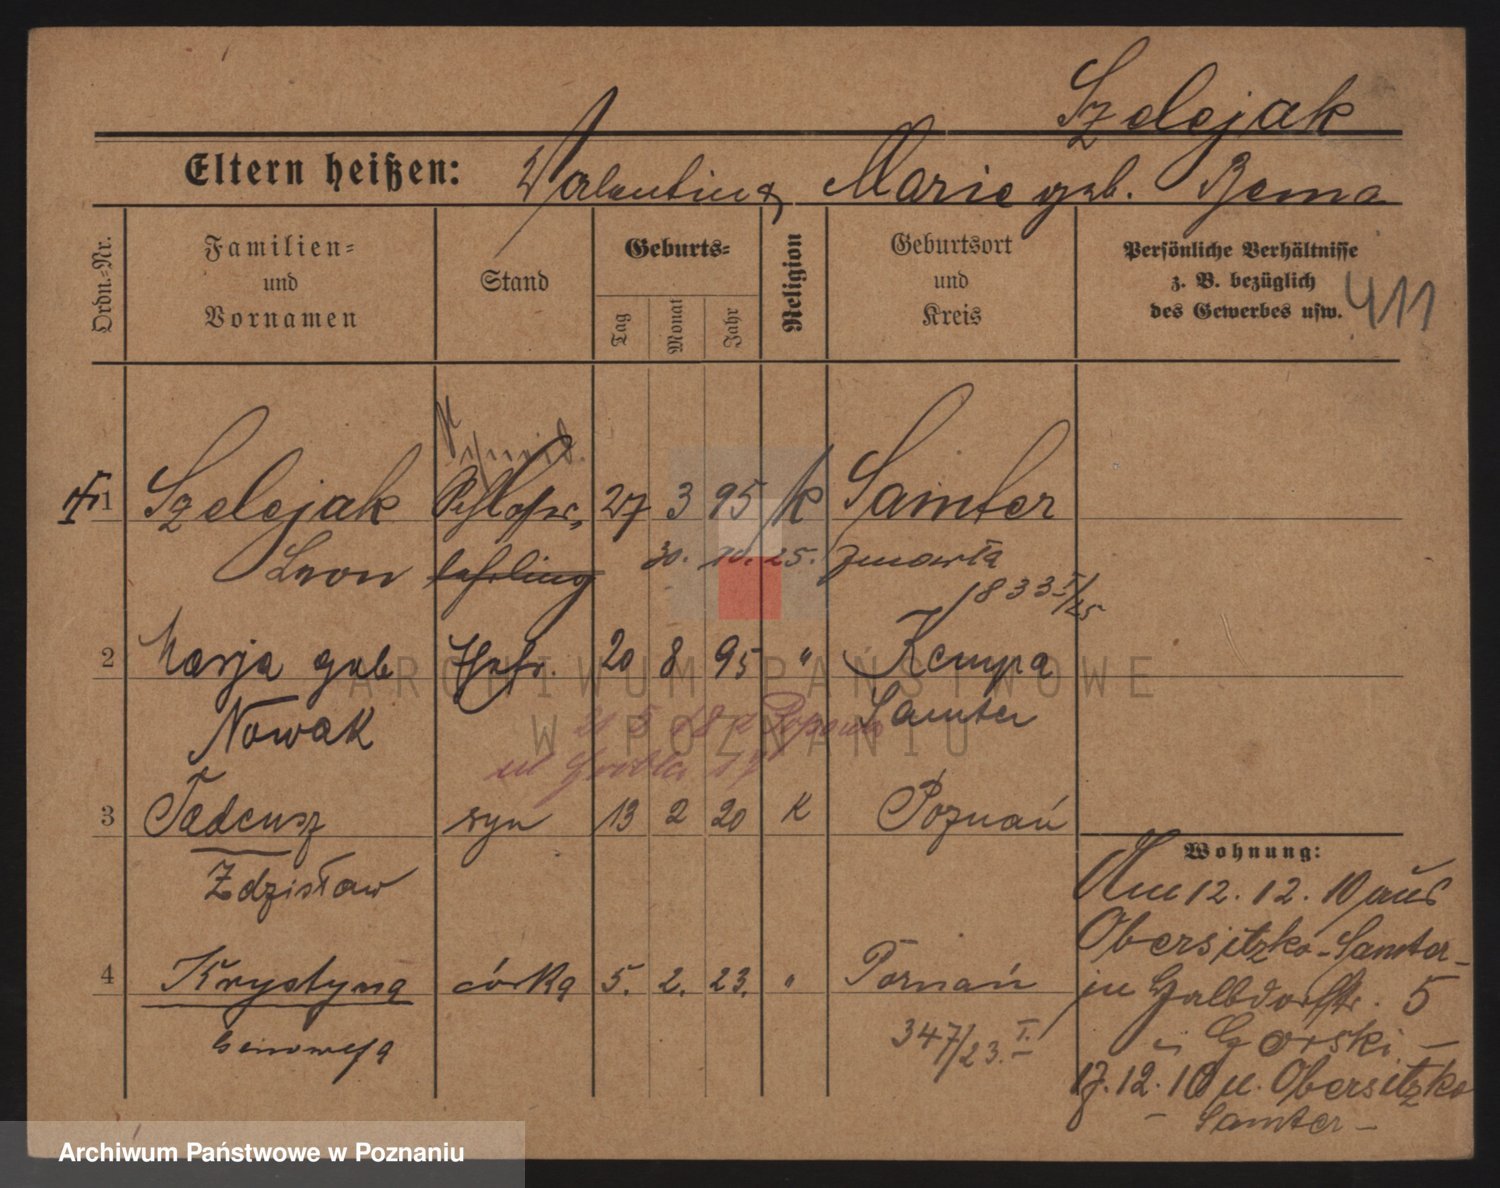 Szelejak
Eltern heißen: Valentin & Marie geb. Bema
Ordn.=Nr.
Familien=
und
Vornamen
Stand
Geburts=
Tag
Monat
Jahr
Religion
Geburtsort
und
Kreis
Persönliche Verhältnisse
z. B. bezüglich
des Gewerbes usw.
411
1 Szelejak Schlosser 27 3 95 k Samter
Leon lehrling 30. 10. 25. zmarła
1833 I/25
2 Marja geb Ehefr. 20 8 95 " Kempa
Nowak Samter
3 Tadeusz syn 13 2 20 K Poznań
Zdzisław
Wohnung:
Am 12. 12. 10 aus
Obersitzko - Samter -
4 Krystyna córka 5. 2. 23. " Poznań
in Halbdorfstr. 5
Genowefa
347/23. I.
Gorski -
17. 12. 10 n. Obersitzko
- Samter -
ARCHIWUM PAŃSTWOWE
W POZNANIU
Archiwum Państwowe w Poznaniu